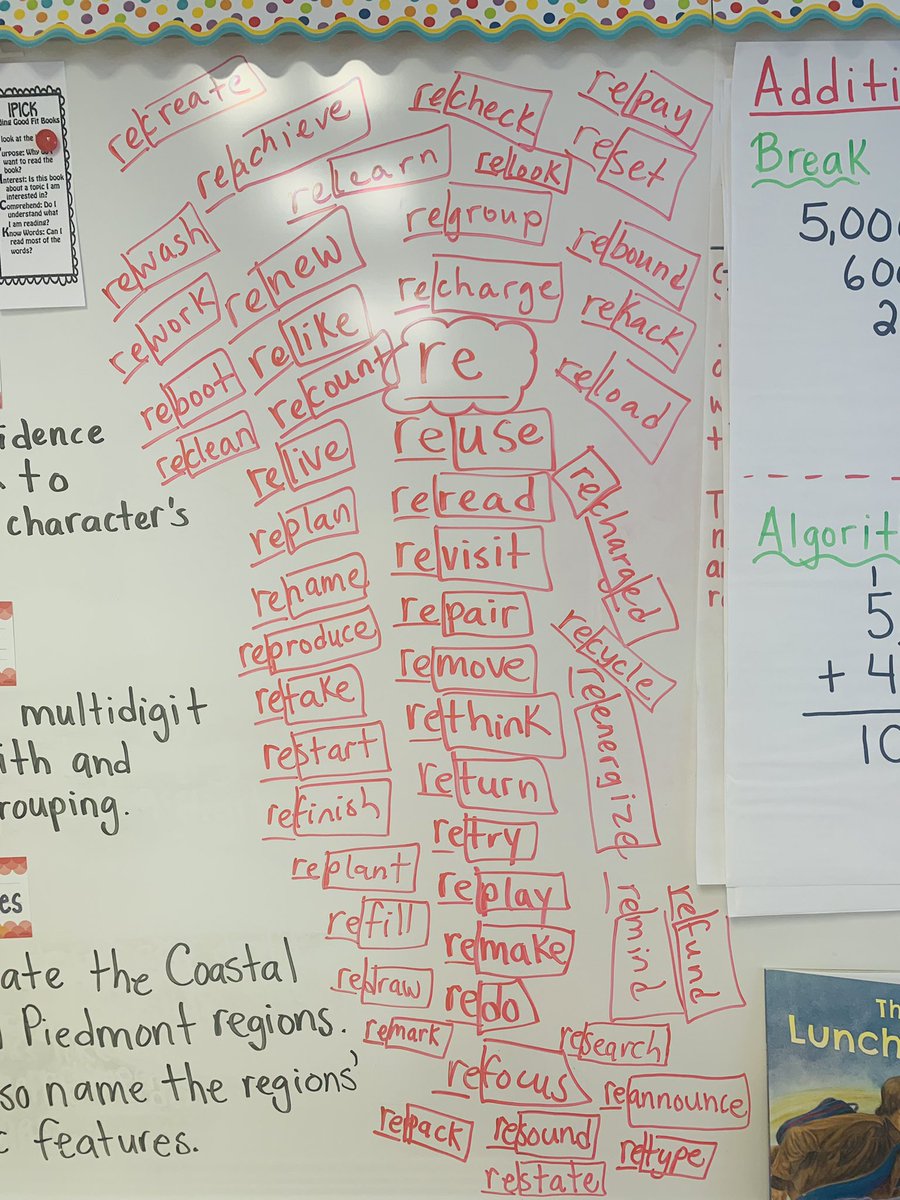 IPICK
ding Good Fit Books
look at the
Purpose: Why do I
want to read the
book?
Interest: Is this book
about a topic I am
interested in?
Comprehend: Do I
understand what
I am reading?
Know Words: Can I
read most of the
words?
recreate
reachieve
recheck
repay
relearn
relook
reset
regroup
rewash
renew
rebound
recharge
rework
rehack
relike
re
reload
reboot
recount
reclean
reuse
relive
reread
recharged
replan
revisit
rename
repair
reproduce
recycle
remove
retake
reenergize
rethink
restart
return
refinish
retry
replant
replay
remind
refund
refill
remake
redraw
redo
remark
research
refocus
reannounce
repack
resound
retype
restate
idence
to
character's
multidigit
ith and
rouping.
es
ate the Coastal
Piedmont regions.
so name the regions'
c features.
Additi
Break
5,000
600
2
Algorit
1
5,
+ 4
10
Th
Lunch